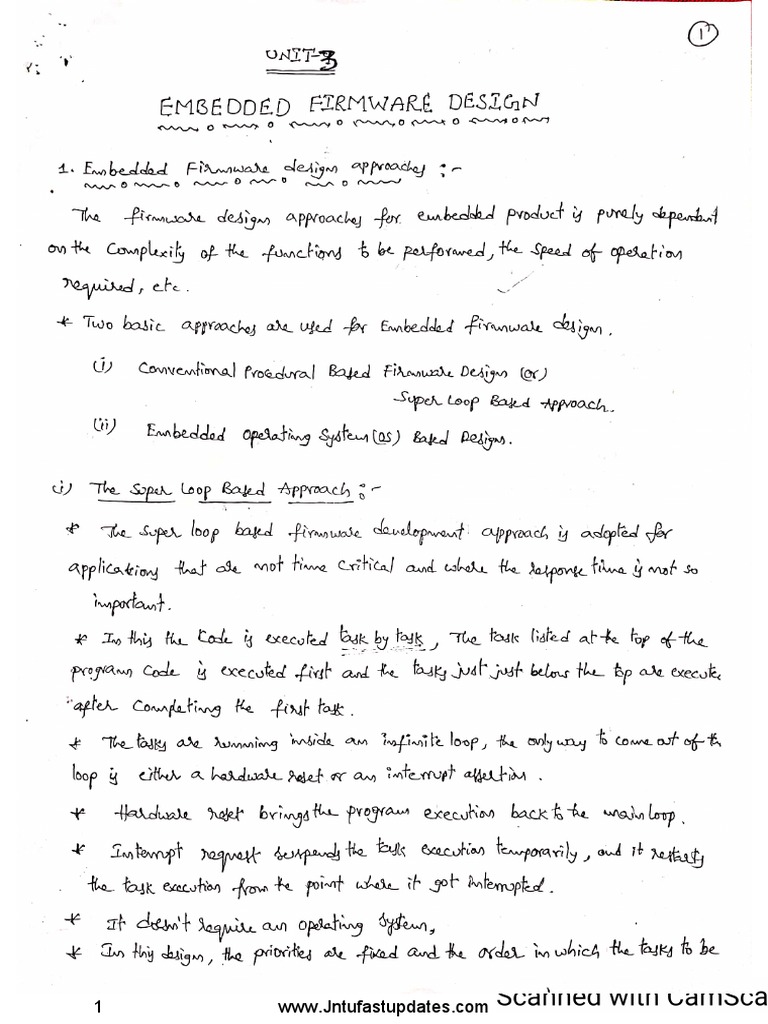 1
UNIT-3
EMBEDDED FIRMWARE DESIGN
1. Embedded Firmware design approaches :-
The firmware design approaches for embedded product is purely dependent
on the complexity of the functions to be performed, the speed of operation
required, etc.
* Two basic approaches are used for Embedded firmware design.
(i) Conventional Procedural Based Firmware Design (or)
Super Loop Based Approach.
(ii) Embedded Operating System (OS) Based Design.
(i) The Super Loop Based Approach :-
* The super loop based firmware development approach is adopted for
applications that are not time critical and where the response time is not so
important.
* In this the Code is executed task by task, The task listed at the top of the
program code is executed first and the tasks just just below the top are execute
after completing the first task.
* The tasks are running inside an infinite loop, the only way to come out of th
loop is either a hardware reset or an interrupt assertion.
* Hardware reset brings the program execution back to the main loop.
* Interrupt request suspends the task execution temporarily, and it restarts
the task execution from the point where it got interrupted.
* It doesn't require an operating system,
* In this design, the priorities are fixed and the order in which the tasks to be
1 www.Jntufastupdates.com Scanned with CamSca